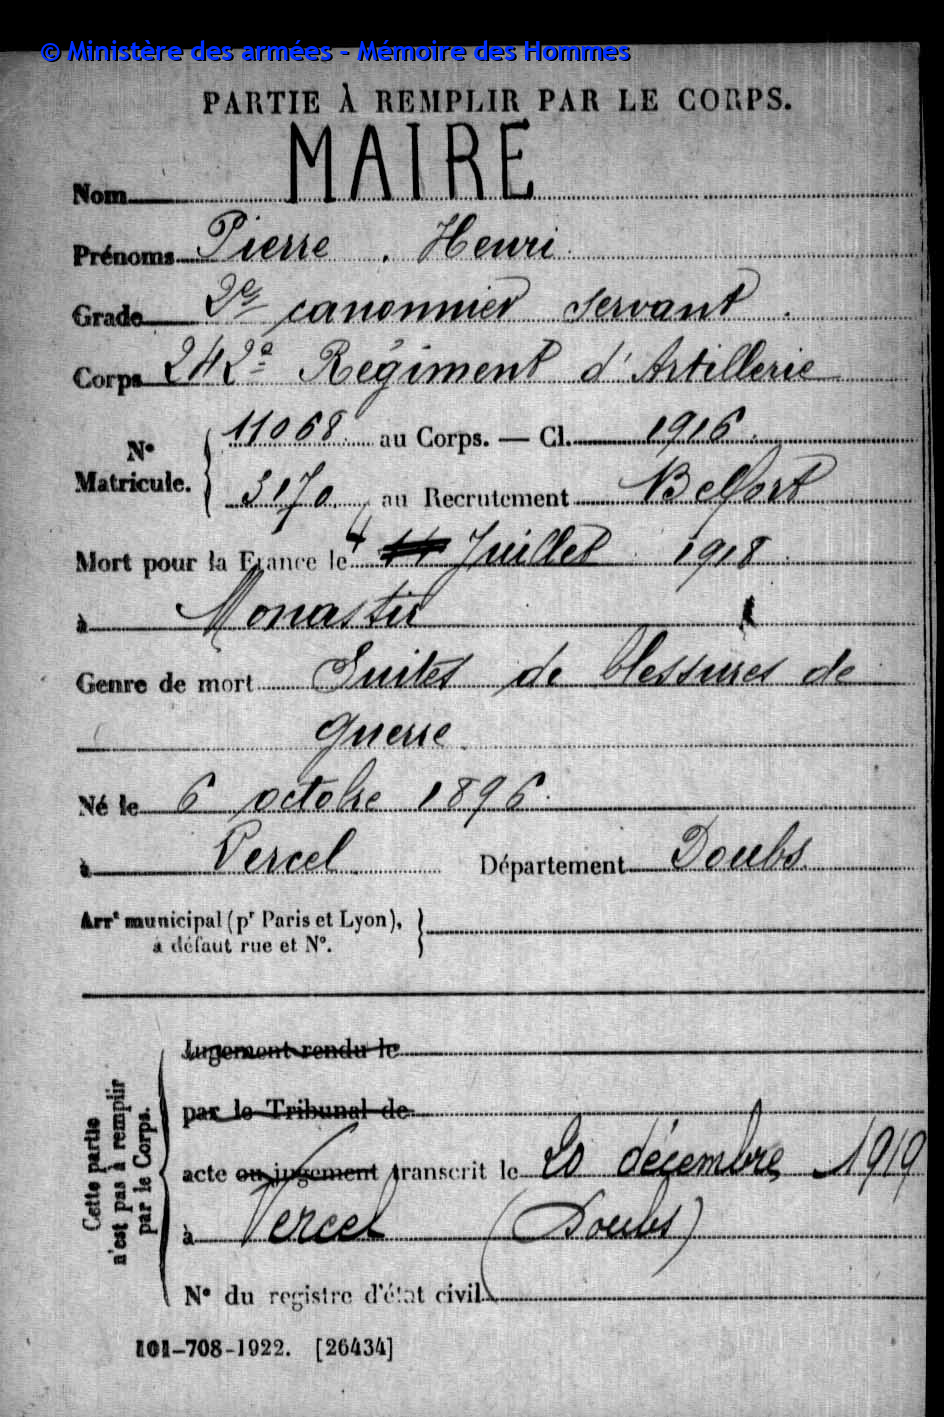 © Ministère des armées - Mémoire des Hommes
PARTIE À REMPLIR PAR LE CORPS.
Nom MAIRE
Prénoms Pierre . Henri
Grade 2e canonnier servant .
Corps 242e Régiment d'Artillerie
N° Matricule. { 11068 au Corps. — Cl. 1916.
3170 au Recrutement Belfort
Mort pour la France le 4 Juillet 1918
à Monastir
Genre de mort Suites de blessures de
guerre.
Né le 6 octobre 1896.
à Vercel. Département Doubs.
Arrt municipal (pr Paris et Lyon),
à défaut rue et N°.
Cette partie n'est pas à remplir par le Corps.
Jugement rendu le
par le Tribunal de
acte ou jugement transcrit le 20 décembre 1919
à Vercel (Doubs)
N° du registre d'état civil
101-708-1922. [26434]